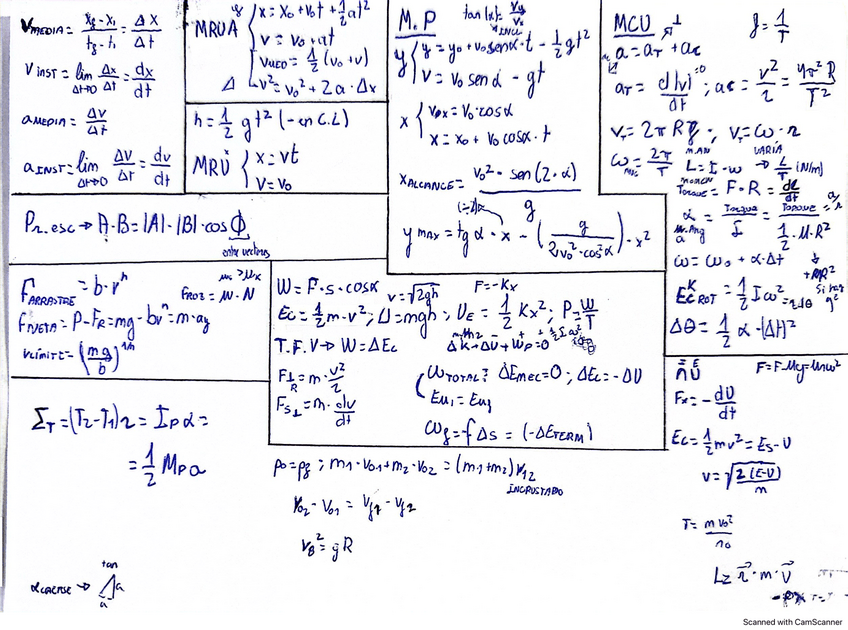 V MEDIA = (x₂ - x₁)/(t₂ - t₁) = ΔX/Δt
V INST = lim Δt→0 Δx/Δt = dx/dt
a MEDIA = Δv/Δt
a INST = lim Δt→0 ΔV/Δt = dv/dt
MRUA
x = x₀ + v₀t + 1/2 at²
v = v₀ + at
V MED = 1/2 (v₀ + v)
v² = v₀² + 2a · Δx
h = 1/2 g t² (- en C.L)
MRU
x = vt
v = v₀
M.P
tan(α) = vy/vx
y
y = y₀ + v₀ senα · t - 1/2 gt²
v = v₀ sen α - gt
x
v₀x = v₀ · cosα
x = x₀ + v₀ cosα · t
X ALCANCE = v₀² · sen(2 · α)/g
y MAX = tg α · x - (g/(2v₀² · cos²α)) · x²
MCU
f = 1/T
a = aT + ac
aT = d|v|/dt =0 ; ac = v²/r = 4π² R/T²
vT = 2π R f ; vT = ω · r
ω = 2π/T L = I · ω
VARIA
(N/m)
TORQUE = F · R = dL/dt
α = TORQUE/I = TORQUE/(1/2 · M · R²)
ω = ω₀ + α · Δt
Ec ROT = 1/2 I ω²
Δθ = 1/2 α · (Δt)²
Pr. esc → A · B = |A| · |B| · cos ϕ
entre vectores
F ARRASTRE = b · vⁿ
F ROZ = μ · N
F NETA = P - FR = mg - bvⁿ = m · ay
V LÍMITE = (mg/b)^1/n
W = F · s · cosα
v = √2gh
F = -Kx
Ec = 1/2 m · v² ; U = mgh ; UE = 1/2 Kx² ; P = W/T
T.F.V → W = ΔEc
ΔK + ΔU + Wp = 0
F⊥R = m · v²/R
W TOTAL ? ΔEmec = 0 ; ΔEc = -ΔU
Em₁ = Em₂
Fs⊥ = m · dv/dt
Wf = -f Δs = (-ΔE TERM)
F = F - Mg = mω²
Fx = - dU/dt
Ec = 1/2 mv² = Es - U
v = √(2(E-U)/m)
T = m v₀²/r₀
L = r · m · v
ΣT = (T₂ - T₁) r = Ip α =
= 1/2 Mp a
p₀ = pf ; m₁ · v₀₁ + m₂ · v₀₂ = (m₁ + m₂) v₁₂
INCRUSTADO
v₀₂ - v₀₁ = vf₁ - vf₂
vB² = g R
tan
a
a
Scanned with CamScanner